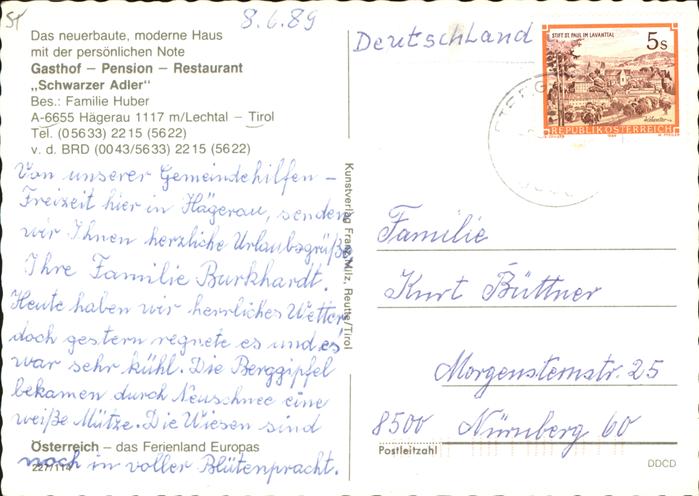 St
8.6.89
Das neuerbaute, moderne Haus
mit der persönlichen Note
Gasthof – Pension – Restaurant
„Schwarzer Adler"
Bes.: Familie Huber
A-6655 Hägerau 1117 m/Lechtal – Tirol
Tel. (05633) 2215 (5622)
v. d. BRD (0043/5633) 2215 (5622)
Von unserer Gemeindehilfen –
Freizeit hier in Hägerau, senden
wir Ihnen herzliche Urlaubsgrüße
Ihre Familie Burkhardt.
Heute haben wir herrliches Wetter,
doch gestern regnete es und es
war sehr kühl. Die Berggipfel
bekamen durch Neuschnee eine
weiße Mütze. Die Wiesen sind
Österreich – das Ferienland Europas
noch in voller Blütenpracht.
227/114
Kunstverlag Franz Milz, Reutte/Tirol
Deutschland
STIFT ST. PAUL IM LAVANTTAL
5 S
REPUBLIK ÖSTERREICH
Familie
Kurt Büttner
Morgensternstr. 25
8500 Nürnberg 60
Postleitzahl
DDCD